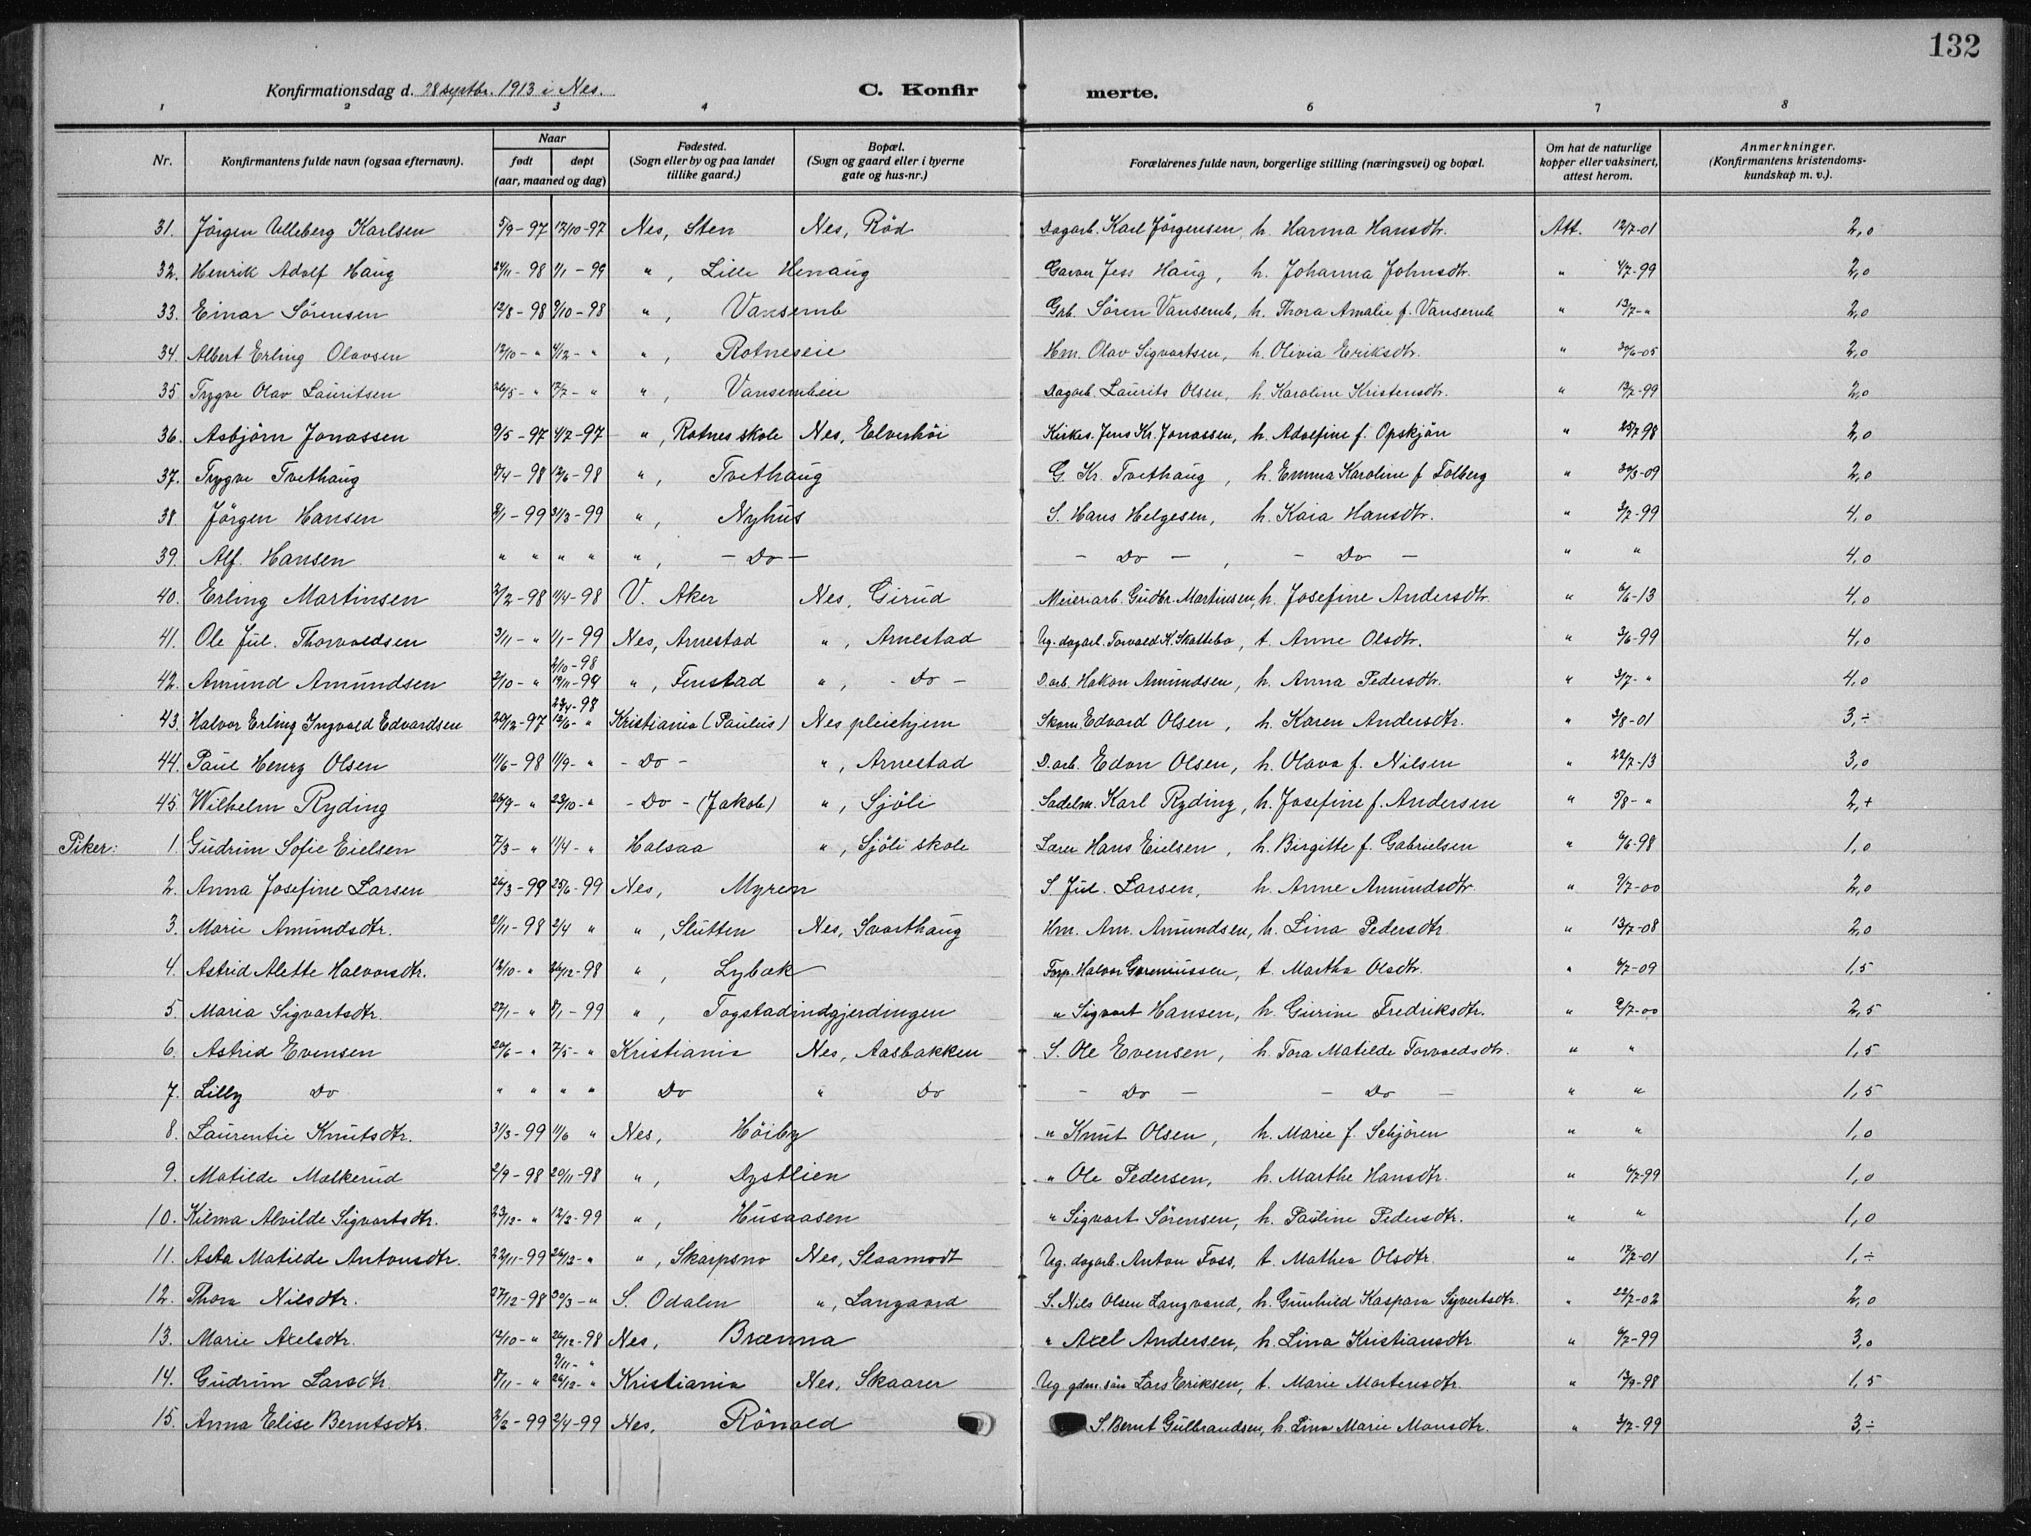 132
Konfirmationsdag d. 28 septbr. 1913 i Nes. C. Konfirmerte.
1 2 3 4 6 7 8
Nr. Konfirmantens fulde navn (ogsaa efternavn). Naar født døpt (aar, maaned og dag) Fødested. (Sogn eller by og paa landet tillike gaard.) Bopæl. (Sogn og gaard eller i byerne gate og hus-nr.) Forældrenes fulde navn, borgerlige stilling (næringsvei) og bopæl. Om hat de naturlige kopper eller vaksinert, attest herom. Anmerkninger. (Konfirmantens kristendoms-kundskap m. v.).
31. Jörgen Ulleberg Karlsen 5/9-97 17/10-97 Nes, Sten Nes, Röd Dagarb. Karl Jörgensen, h. Hanna Hansdtr. Att. 12/7-01 2,0
32. Henrik Adolf Haug 24/11-98 1/1-99 ", Lille Henaug Garver Jess Haug, h. Johanna Johnsdtr. " 4/7-99 2,0
33. Einar Sörensen 12/8-98 9/10-98 ", Vansemb Grb. Sören Vansemb, h. Thora Amalie f. Vansemb " 13/7-" 2,0
34. Albert Erling Olavsen 12/10-" 4/12-" ", Rotneseie Hm. Olav Sigvartsen, h. Olivia Eriksdtr. " 30/6-05 2,0
35 Trygve Olav Lauritsen 26/5-" 17/7-" ", Vansembeie Dagarb. Laurits Olsen, h. Karoline Kristensdtr. " 13/7-99 2,0
36. Asbjörn Jonassen 9/5-97 4/7-97 ", Rotnes skole Nes, Elverhöi Kirkes. Jens Kr. Jonassen, h. Adolfine f. Opskjön " 25/7-98 2,0
37. Trygve Tvethaug 8/4-98 12/6-98 ", Tvethaug G. Kr. Tvethaug, h. Emma Karoline f Tolberg " 30/3-09 2,0
38. Jörgen Hansen 2/1-99 31/3-99 ", Nyhus S. Hans Helgesen, h. Kaia Hansdtr. " 3/7-99 4,0
39. Alf. Hansen " " " " ", - Do - - Do -, - Do - " " 4,0
40. Erling Martinsen 2/2-98 11/4-98 V. Aker Nes, Girud Meieriarb. Gudbr. Martinsen, h. Josefine Andersdtr. " 6/6-13 4,0
41. Ole Jul. Thorvaldsen 3/11-" 1/1-99 Nes, Arnestad ", Arnestad Ug. dagarb. Torvald K. Skattebo, t. Anne Olsdtr. " 3/6-99 4,0
2/10-98
42. Amund Amundsen 2/10-" 19/11-99 ", Fenstad ", - Do - D.arb. Hakon Amundsen, h. Anna Pedersdtr. " 3/7-" 4,0
23/4-98
43. Halvor Erling Ingvald Edvardsen 20/12-97 12/6-" Kristiania (Paulus) Nes pleiehjem Skom. Edvard Olsen, h. Karen Andersdtr. " 3/8-01 3,÷
44. Paul Henry Olsen 11/6-98 11/9-" - Do - ", Arnestad D.arb. Edvn Olsen, h. Olava f. Nilsen " 22/7-13 3,0
45. Wilhelm Ryding 26/9-" 23/10-" - Do - (Jakob) ", Sjöli Sadelm. Karl Ryding, h. Josefine f. Andersen " 5/8-" 2,+
Piker: 1. Gudrun Sofie Eielsen 7/3-" 11/4-" Halsaa ", Sjöli skole Lærer Hans Eielsen, h. Birgitte f. Gabrielsen " 6/6-98 1,0
2. Anna Josefine Larsen 26/3-99 25/6-99 Nes, Myren S. Jul. Larsen, h. Anne Amundsdtr. " 9/7-00 2,0
3. Marie Amundsdtr. 2/11-98 2/4 " ", Slutten Nes, Svarthaug Hm. Am. Amundsen, h. Lina Pedersdtr " 13/7-08 2,0
4. Astrid Alette Halvorsdtr. 12/10-" 26/12-98 ", Lybæk Forp. Halvor Gereniussen, t. Martha Olsdtr. " 6/7-09 1,5
5. Maria Sigvartsdtr. 27/1-" 8/1-99 ", Togstadindgjerdingen " Sigvart Hansen, h. Gurine Fredriksdtr. " 9/7-00 2,5
6. Astrid Evensen 20/6-" 7/5-" Kristiania Nes, Aasbakken S. Ole Evensen, h. Tora Matilde Torvaldsdtr. " " 1,5
7. Lilly Do " " " " Do " Do - Do - - Do - " " 1,5
8. Laurentie Knutsdtr. 3/3-99 11/6 " Nes, Höiby " Knut Olsen, h. Marie f. Schjören " " 1,0
9. Matilde Mælkerud 2/9-98 20/11-98 ", Dystlien " Ole Pedersen, h. Marthe Hansdtr. " 6/7-99 1,0
10. Kilma Alvilde Sigvartsdtr. 23/12-" 12/3-99 ", Husaasen " Sigvart Sörensen, h. Pauline Pedersdtr. " " 1,0
11. Asta Matilde Antonsdtr. 22/11-99 26/12-" ", Skarpsno Nes, Slaamodt Ug. dagarb. Anton Foss, t. Mathea Olsdtr. " 12/7-01 1,÷
12. Thora Nilsdtr. 27/12-98 30/3-" S. Odalen ", Langaard S. Nils Olsen Langvand, h. Gunhild Kaspara Syvertsdtr. " 22/7-02 2,0
13. Marie Axelsdtr. 12/10-" 26/12-98 Nes, Brænna " Axel Andersen, h. Lina Kristiansdtr. " 6/7-99 3,0
9/11-"
14. Gudrun Larsdtr. 8/11-" 26/12-" Kristiania Nes, Skaarer Ug. gdm. sön Lars Eriksen, t. Marie Martensdtr. " 13/9-98 1,5
15. Anna Elise Berntsdtr. 2/2-99 2/4-99 Nes, Rönold S. Bernt Gulbrandsen, h. Lina Marie Monsdtr. " 3/7-99 3,÷